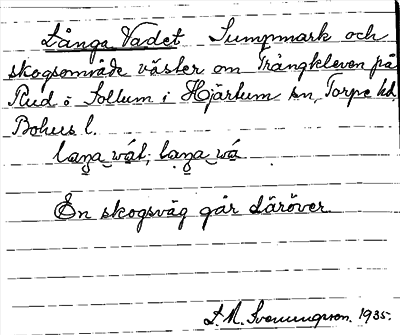 Långa Vadet Sumpmark och
skogsområde väster om Trångkleven på
Rud ö Sollum i Hjärtum sn, Torpe hd,
Bohus l.
laŋa wát; laŋa wá
En skogsväg går däröver.
S. M. Svenungson. 1935.